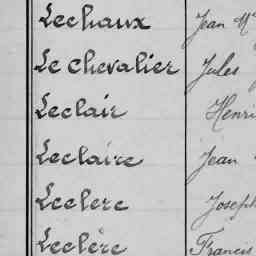 Lechaux Jean M
Le Chevalier Jules
Leclair Henri
Leclaire Jean
Leclerc Joseph
Leclère Francis